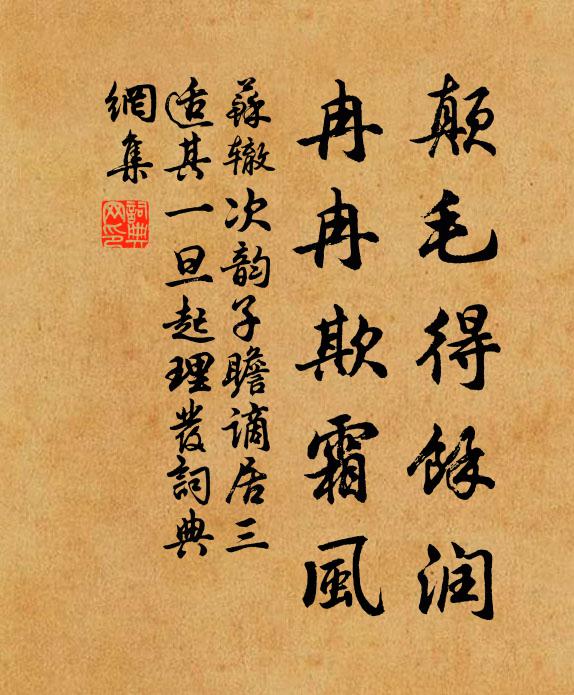 颠毛得馀润
冉冉欺霜風
蘇辙次韵子瞻谪居三
适其一旦起理發詞典
網集
詞典
网印